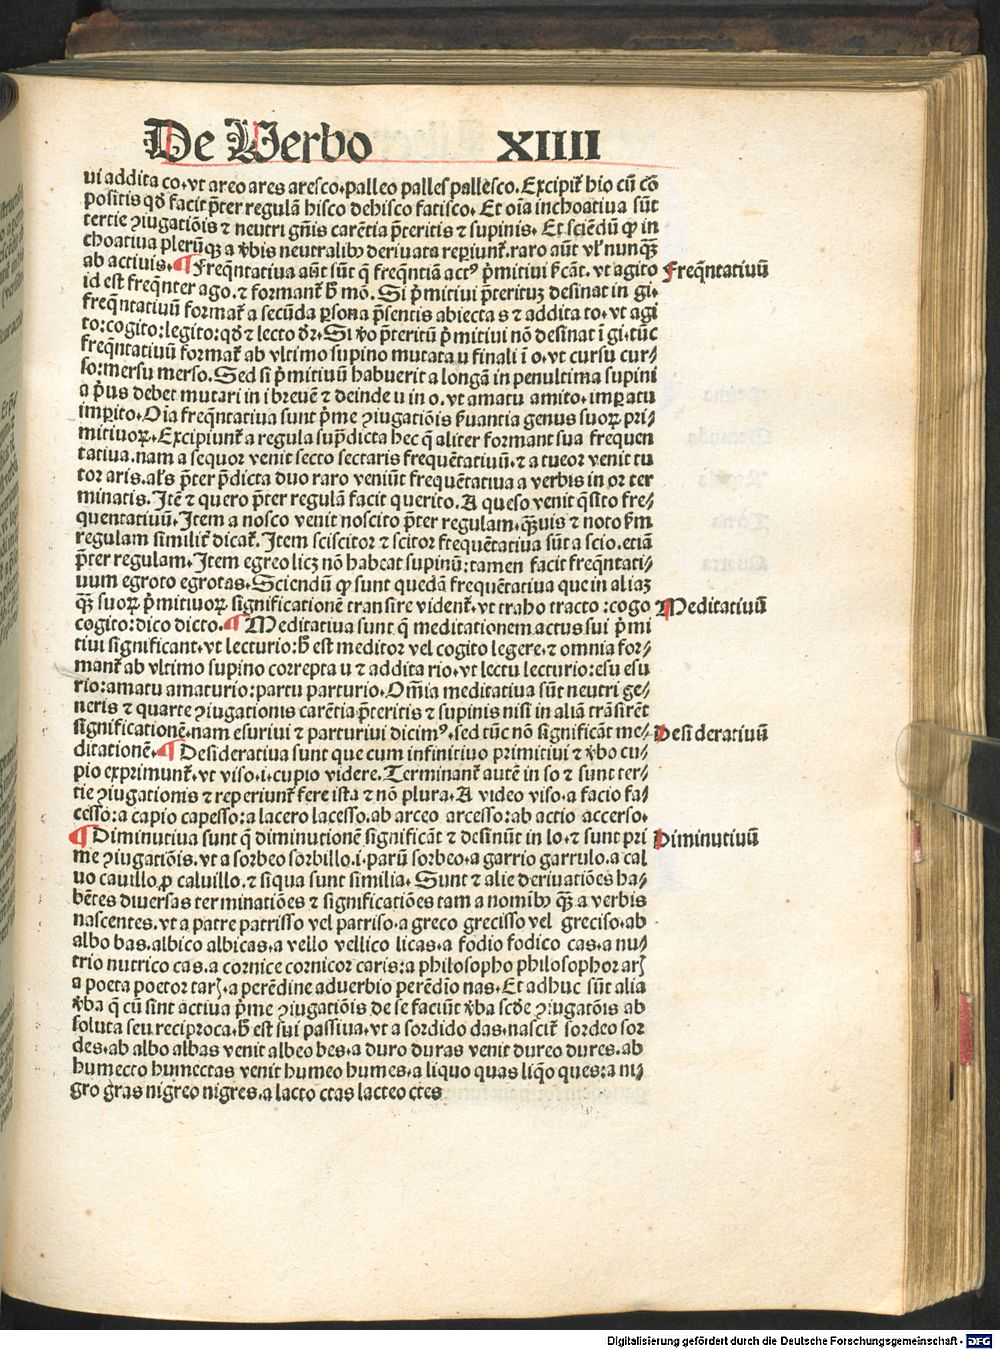 De Verbo XIIII
ui addita co. vt areo ares aresco. palleo palles pallesco. Excipit̃ hio cũ cõ
positis qđ facit p̃ter regulã hisco dehisco fatisco. Et oĩa inchoatiua sũt
tertie ꝯiugatiõis ⁊ neutri gñis carẽtia p̃teritis ⁊ supinis. Et sciẽdũ ꝙ in
choatiua pleruꝫqꝫ a v̄bis neutralibꝰ deriuata reꝑiunt̃. raro aũt vl̓ nunqꝫ
ab actiuis. ¶ Freq̃ntatiua aũt sũt q̃ freq̃ntiã actꝰ p̃mitiui s̓cãt. vt agito Freq̃ntatiuũ
id est freq̃nter ago. ⁊ formant̃ h̓ mõ. Si p̃mitiui p̃teritũ desinat in gi.
freq̃ntatiuũ format̃ a secũda ꝑsona p̃sentis abiecta s ⁊ addita to. vt agi
to: cogito: legito: qđ ⁊ lecto dr̃. Si v̄o p̃teritũ p̃mitiui nõ desinat ĩ gi. tũc
freq̃ntatiuũ format̃ ab vltimo supino mutata u finali ĩ o. vt cursu cur/
so: mersu merso. Sed si p̃mitiuũ habuerit a longã in penultima supini
a p̓us debet mutari in i breuẽ ⁊ deinde u in o. vt amatu amito. imꝑatu
imꝑito. Oĩa freq̃ntatiua sunt p̓me ꝯiugatiõis s̓uantia genus suoꝝ pri/
mitiuoꝝ. Excipiunt̃ a regula sup̃dicta hec q̃ aliter formant sua frequen
tatiua. nam a sequor venit secto sectaris frequẽtatiuũ. ⁊ a tueor venit tu
tor aris. al̓s p̃ter p̃dicta duo raro veniũt frequẽtatiua a verbis in or ter
minatis. Itẽ ⁊ quero p̃ter regulã facit querito. A queso venit q̃sito fre/
quentatiuũ. Item a nosco venit noscito p̃ter regulam. qꝫuis ⁊ noto s̓m
regulam similit̃ dicat̃. Item sciscitor ⁊ scitor frequẽtatiua sũt a scio. etiã
p̃ter regulam. Item egreo licꝫ nõ habeat supinũ: tamen facit freq̃ntati/
uum egroto egrotas. Sciendũ ꝙ sunt quedã frequẽtatiua que in aliaꝫ
qꝫ suoꝝ p̓mitiuoꝝ significationẽ transire vident̃. vt traho tracto: cogo Meditatiuũ
cogito: dico dicto. ¶ Meditatiua sunt q̃ meditationem actus sui p̓mi
tiui significant. vt lecturio: h̓ est meditor vel cogito legere. ⁊ omnia for/
mant̃ ab vltimo supino correpta u ⁊ addita rio. vt lectu lecturio: esu esu
rio: amatu amaturio: partu parturio. Om̃ia meditatiua sũt neutri ge/
neris ⁊ quarte ꝯiugationis carẽtia p̃teritis ⁊ supinis nisi in aliã trãsirẽt
significationẽ. nam esuriui ⁊ parturiui dicimꝰ. sed tũc nõ significãt me/ Desideratiuũ
ditationẽ. ¶ Desideratiua sunt que cum infinitiuo primitiui ⁊ v̄bo cu/
pio exprimunt̃. vt viso .i. cupio videre. Terminant̃ autẽ in so ⁊ sunt ter/
tie ꝯiugationis ⁊ reperiunt̃ fere ista ⁊ nõ plura. A video viso. a facio fa/
cesso: a capio capesso: a lacero lacesso. ab arceo arcesso: ab actio accerso.
¶ Diminutiua sunt q̃ diminutionẽ significãt ⁊ desinũt in lo. ⁊ sunt pri Diminutiuũ
me ꝯiugatiõis. vt a sorbeo sorbillo .i. parũ sorbeo. a garrio garrulo. a cal
uo cauillo ꝓ caluillo. ⁊ siqua sunt similia. Sunt ⁊ alie deriuatiões ha/
bẽtes diuersas terminatiões ⁊ significatiões tam a nomibꝰ qꝫ a verbis
nascentes. vt a patre patrisso vel patriso. a greco grecisso vel greciso. ab
albo bas. albico albicas. a vello vellico licas. a fodio fodico cas. a nu/
trio nutrico cas. a cornice cornicor caris: a philosopho philosophor arꝭ
a poeta poetor tarꝭ. a perẽdine aduerbio perẽdio nas. Et adhuc sũt alia
v̄ba q̃ cũ sint actiua p̓me ꝯiugatiõis de se faciũt v̄ba scđe ꝯiugatõis ab
soluta seu reciproca. h̓ est sui passiua. vt a sordido das. nascit̃ sordeo sor
des. ab albo albas venit albeo bes. a duro duras venit dureo dures. ab
humecto humectas venit humeo humes. a liquo quas liq̃o ques: a ni/
gro gras nigreo nigres. a lacto ctas lacteo ctes
Digitalisierung gefördert durch die Deutsche Forschungsgemeinschaft - DFG